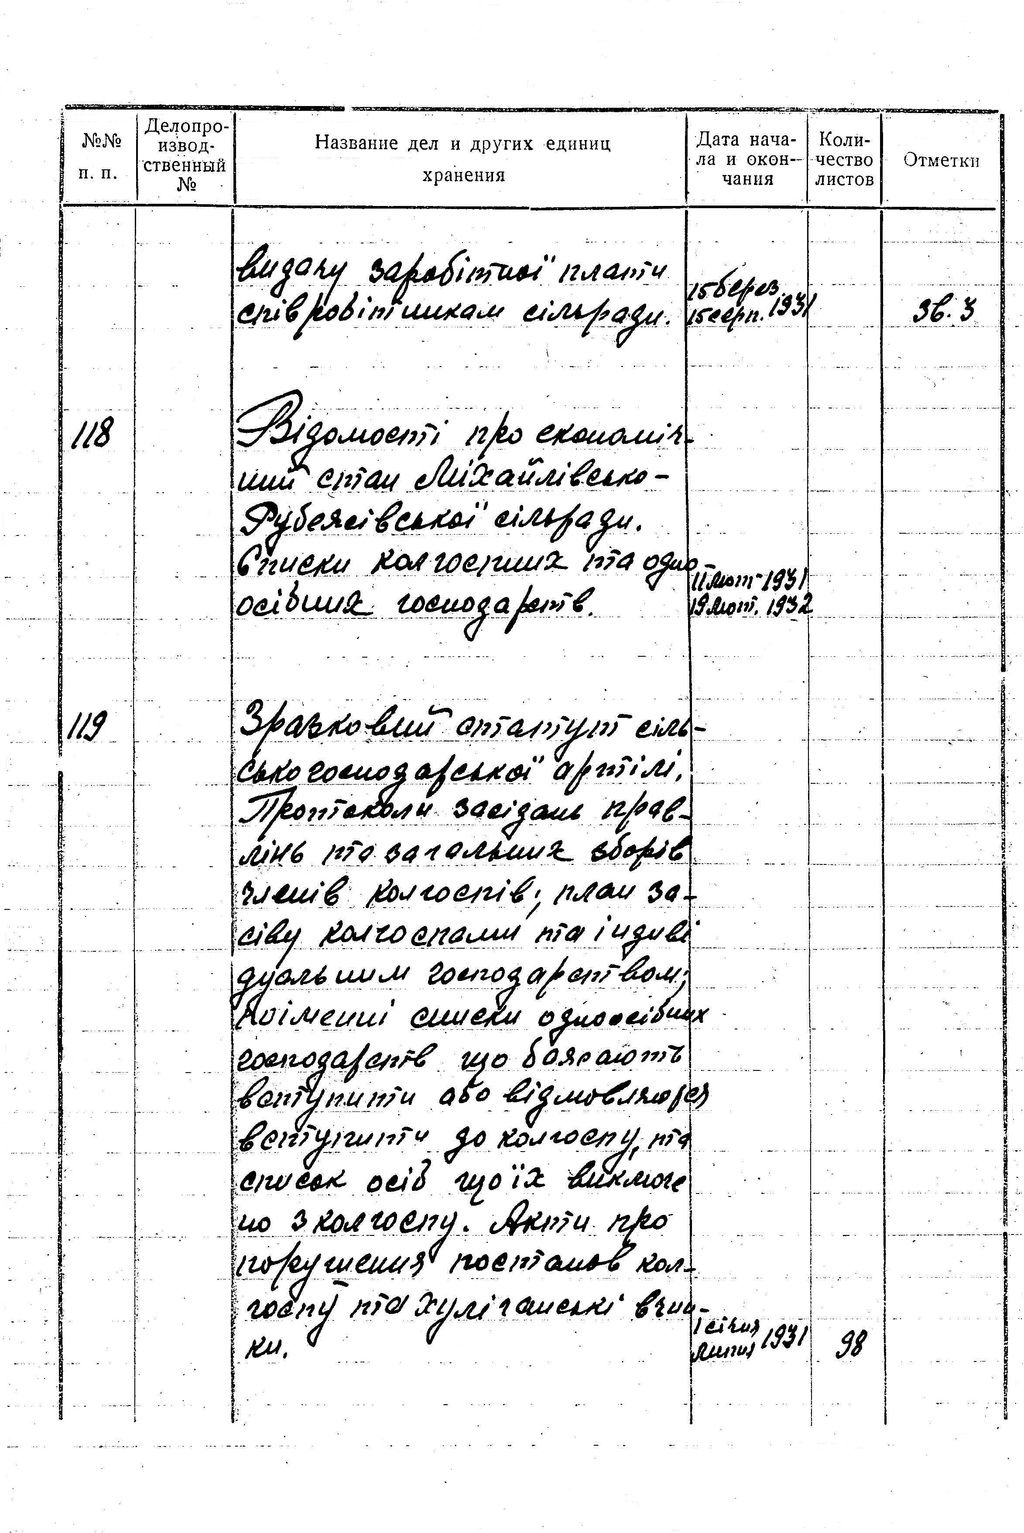 №№ п. п.
Делопро-
извод-
ственный
№
Название дел и других единиц
хранения
Дата нача-
ла и окон-
чания
Коли-
чество
листов
Отметки
видачу заробітної плати
співробітникам сільради.
15 берез.
15 серп. 1931
Зв. 3
118
Відомості про економіч-
ний стан Міхайлівсько-
Рубежівської сільради.
Списки колгоспних та одно-
осібних господарств.
11 лют. 1931
19 лют. 1932
119
Зразковий статут сіль-
ськогосподарської артілі.
Протоколи засідань прав-
лінь та загальних зборів
членів колгоспів; план за-
сіву колгоспами та індиві
дуальним господарством;
поіменні списки одноосібних
господарств що бажають
вступити або відмовляються
вступити до колгоспу, та
список осіб що їх виключе
но з колгоспу. Акти про
порушення постанов кол-
госпу та хуліганські вчин-
ки.
1 січня
липня 1931
98